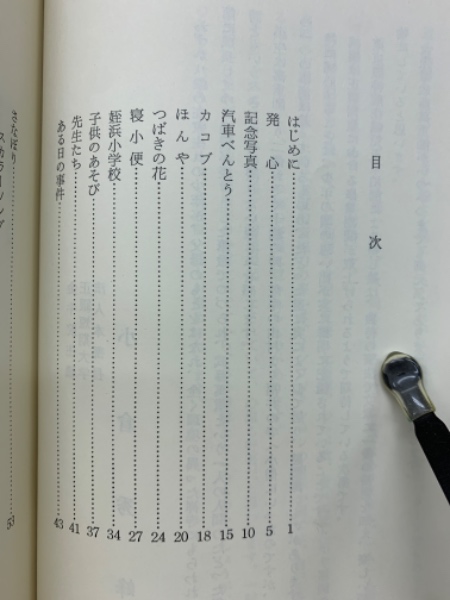 目次
はじめに 1
発心 5
記念写真 10
汽車べんとう 15
カコブ 18
ほんや 20
つばきの花 24
寝小便 27
姪浜小学校 34
子供のあそび 37
先生たち 41
ある日の事件 43
53